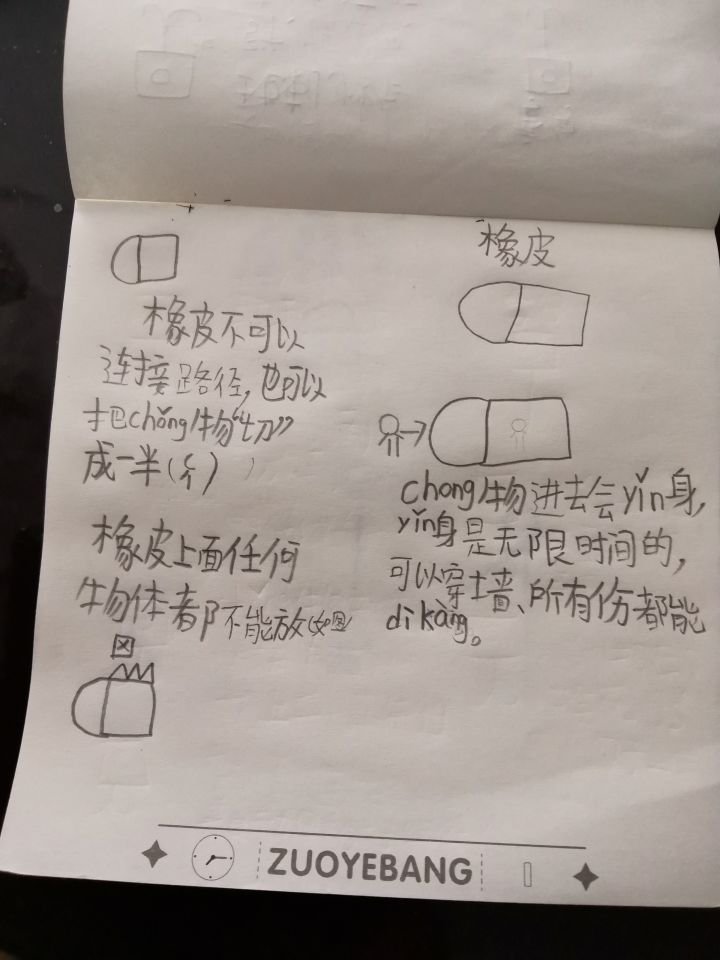 橡皮不可以
连接路径,也可以
把chǒng物“切”
成一半(彳亍)
橡皮上面任何
物体都不能放(如图)
橡皮
chong物进去会yǐn身,
yǐn身是无限时间的,
可以穿墙、所有伤都能
dǐ kàng。
ZUOYEBANG